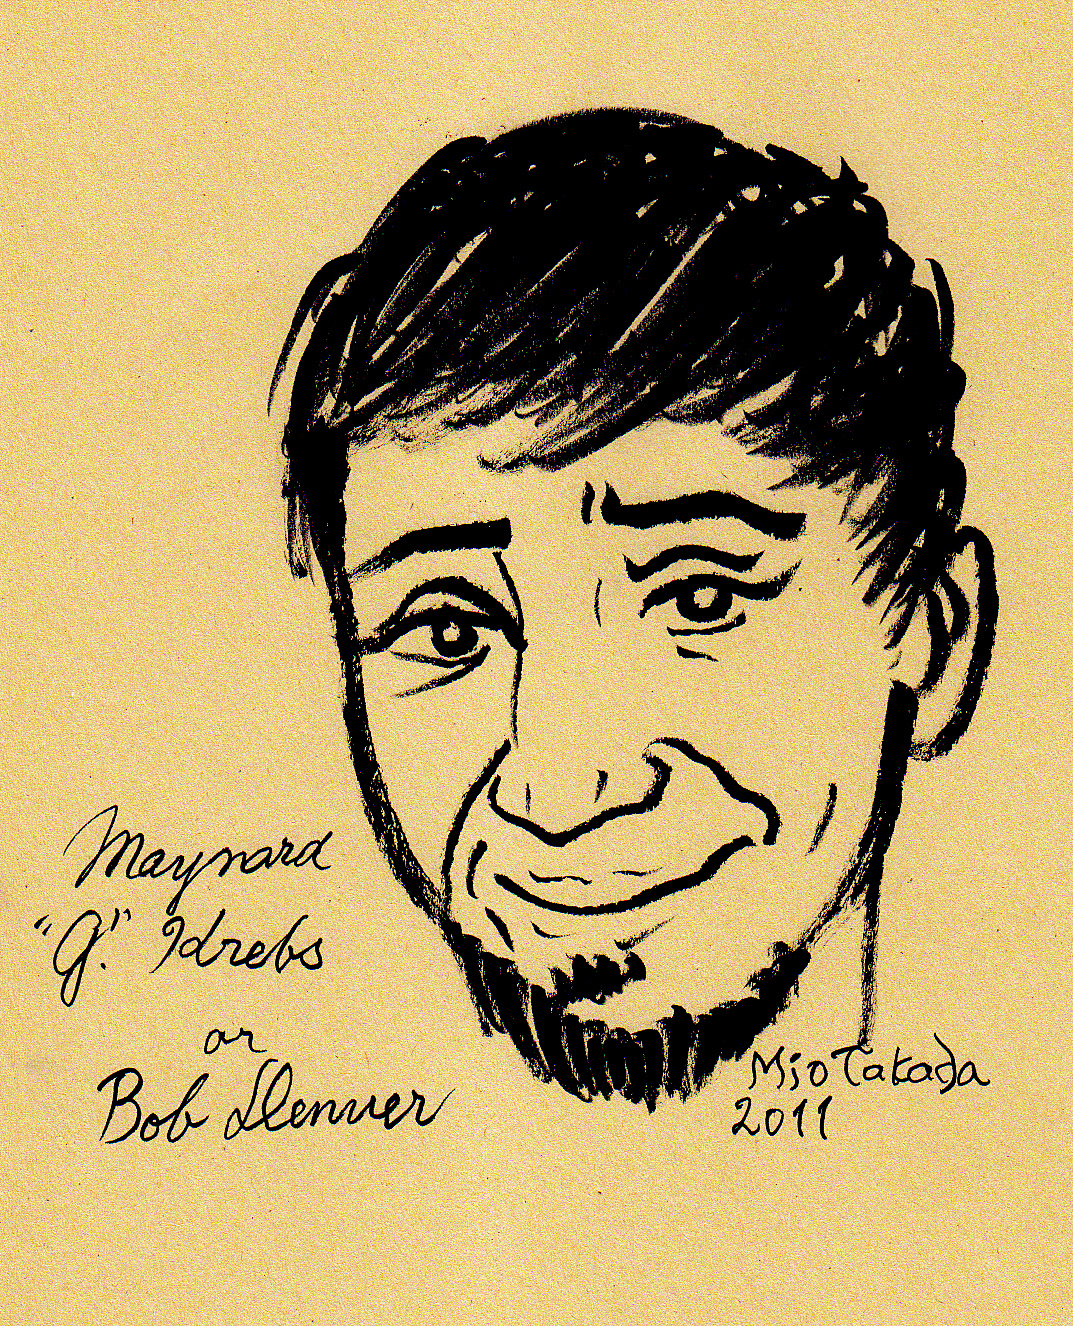 Maynard
"G." Idrebs
or
Bob Denver
Mio Takada
2011